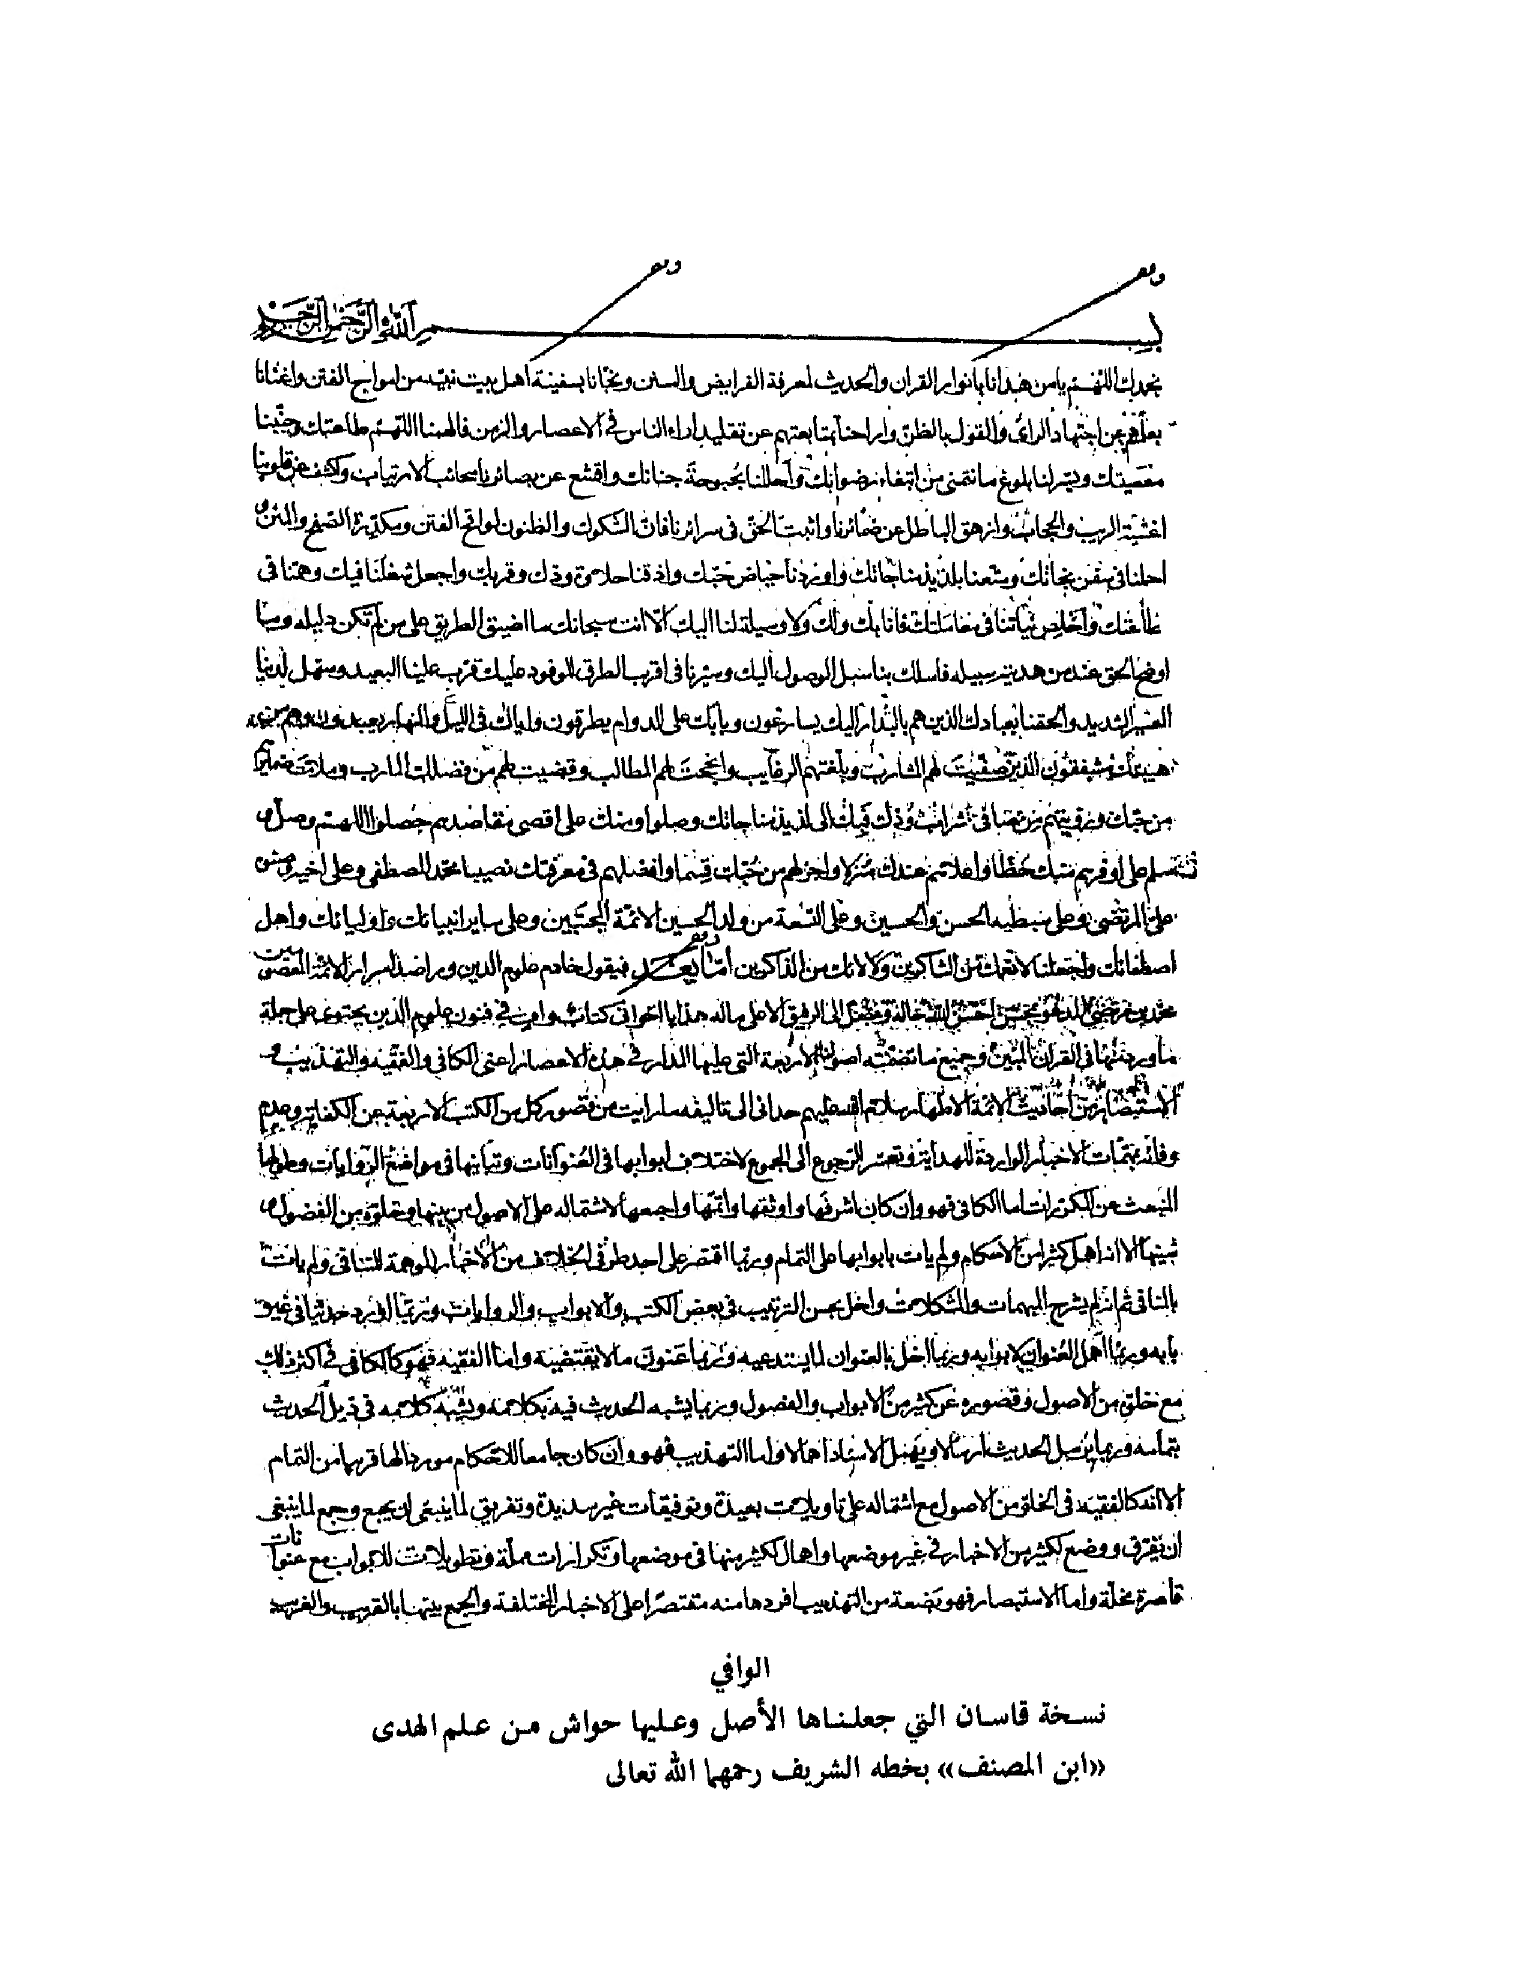 وبه
وبه
بسم الله الرحمن الرحيم
نحمدك اللهم يا من هدانا بانوار القران والحديث لمعرفة الفرايض والسنن ونجانا بسفينة اهل بيت نبيه من امواج الفتن واغنانا
بعلمهم عن اجتهاد الراى والقول بالظن واراحنا بمتابعتهم عن تقليد اراء الناس فى الاعصار والزمن فالهمنا اللهم طاعتك وجنبنا
معصيتك ويسر لنا بلوغ ما نتمنى من ابتغاء رضوانك واحللنا بحبوحة جنانك واقشع عن بصائرنا سحائب الارتياب واكشف عن قلوبنا
اغشية الريب والحجاب وازهق الباطل عن ضمائرنا واثبت الحق فى سرائرنا فان الشكوك والظنون لواقح الفتن ومكدرة الصفح والمنن و
احملنا فى سفن نجاتك ومتعنا بلذيذ مناجاتك واوردنا حياض حبك واذقنا حلاوة ودك وقربك واجعل شغلنا فيك وهمنا فى
طاعتك واخلص نياتنا فى معاملتك فانا بك ولك ولا وسيلة لنا اليك الا انت سبحانك ما اضيق الطريق على من لم تكن دليله وما
اوضح الحق عند من هديته سبيله فاسلك بنا سبل الوصول اليك وسيرنا فى اقرب الطرق للوفود عليك قرب علينا البعيد وسهل لدينا
العسير الشديد والحقنا بعبادك الذين هم بالبدار اليك يسارعون وبابك على الدوام يطرقون واياك فى الليل والنهار يعبدون وهم من
هيبتك مشفقون الذين صفيت لهم المشارب وبلغتهم الرغايب وانجحت لهم المطالب وقضيت لهم من فضلك المارب وملأت ضمايرهم
من حبك ورويتهم من شراب ودك فبك الى لذيذ مناجاتك وصلوا ومنك على اقصى مقاصدهم حصلوا اللهم وصل و
سلم على اوفرهم منك حظا واعلاهم عندك منزلا واجزلهم من حبك قسما وافضلهم فى معرفتك نصيبا محمد المصطفى وعلى اخيه
على المرتضى وعلى سبطيه الحسن والحسين وعلى التسعة من ولد الحسين الائمة المجتبين وعلى ساير انبيائك واوليائك واهل
اصطفائك واجعلنا لانعمك من الشاكرين ولالائك من الذاكرين اما بعد فيقول خادم علوم الدين وراصد اسرار الائمة المعصومين
محمد بن مرتضى المدعو بمحسن احسن الله حاله وجعل الى الرفيق الاعلى ماله هذا يا اخوانى كتاب واف فى فنون علوم الدين يحتوى على جملة
ما ورد منها فى القران المبين وجميع ما تضمنته اصولنا الاربعة التى عليها المدار فى هذه الاعصار اعنى الكافى والفقيه والتهذيب و
الاستبصار من احاديث الائمة الاطهار سلام الله عليهم حدانى الى تاليفه ما رايت من قصور كل من الكتب الاربعة عن الكفاية وعدم
وفائه بمهمات الاخبار الواردة للهداية وتعسر الرجوع الى المجموع لاختلاف ابوابها فى العنوانات وتباينها فى مواضع الروايات وطولها
المنبعث عن المكررات اما الكافى فهو وان كان اشرفها واوثقها واتمها واجمعها لاشتماله على الاصول من بينها وخلوه من الفضول و
شينها الا انه اهمل كثيرا من الاحكام ولم يات بابوابها على التمام وربما اقتصر على احد طرفى الخلاف من الاخبار الموهمة للتنافى ولم يات
بالمنافى ثم انه لم يشرح المبهمات والمشكلات واخل بحسن الترتيب فى بعض الكتب والابواب والروايات وربما اورد حديثا فى غير
بابه وربما اهمل العنوان لابوابه وربما اخل بالعنوان لما يستدعيه وربما عنون ما لا يقتضيه واما الفقيه فهو كالكافى فى اكثر ذلك
مع خلوه من الاصول وقصوره عن كثير من الابواب والفصول وربما يشبه الحديث فيه بكلامه ويشبه كلامه فى ذيل الحديث
بتمامه وربما يرسل الحديث ارسالا ويهمل الاسناد اهمالا واما التهذيب فهو وان كان جامعا للاحكام موردا لها قريبا من التمام
الا انه كالفقيه فى الخلو من الاصول مع اشتماله على تاويلات بعيدة وتوفيقات غير سديدة وتفريق لما ينبغى ان يجمع وجمع لما ينبغى
ان يفرق ووضع لكثير من الاخبار فى غير موضعها واهمال لكثير منها فى موضعها وتكرارات مملة وتطويلات للابواب مع عنوانات
قاصرة مخلة واما الاستبصار فهو بضعة من التهذيب افردها منه مقتصرا على الاخبار المختلفة والجمع بينها بالقريب والغريب
الوافي
نسخة قاسان التي جعلناها الأصل وعليها حواش من علم الهدى
«ابن المصنف» بخطه الشريف رحمهما الله تعالى